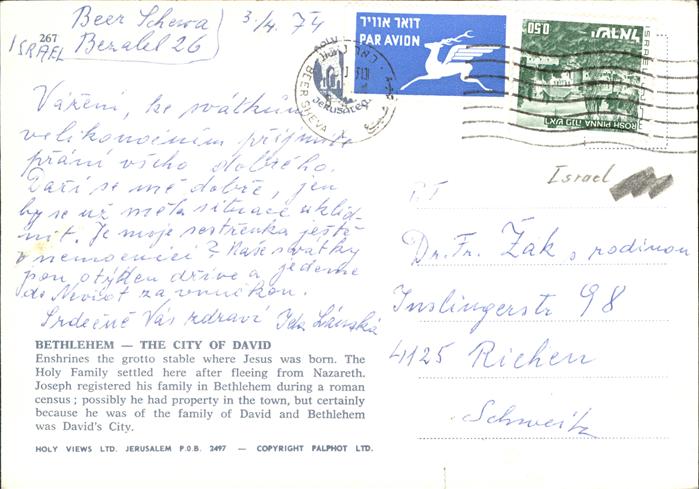 Beer Schewa
Bezalel 26
ISRAEL
3/4. 74
267
Vážení, ke svátkům
velikonočním přijměte
přání všeho dobrého.
Daří se mě dobře, jen
by se už měla situace uklid-
nit. Je moje sestřenka ještě
v nemocnici? Naše svátky
jsou o týden dříve a jedeme
do Nevšot za vnučkou.
Srdečně Vás zdraví Ida Lánská
BETHLEHEM — THE CITY OF DAVID
Enshrines the grotto stable where Jesus was born. The
Holy Family settled here after fleeing from Nazareth.
Joseph registered his family in Bethlehem during a roman
census ; possibly he had property in the town, but certainly
because he was of the family of David and Bethlehem
was David's City.
HOLY VIEWS LTD. JERUSALEM P.O.B. 2497 — COPYRIGHT PALPHOT LTD.
דואר אוויר
PAR AVION
BEER SHEVA
Jerusalem
0.50
ישראל
ISRAEL
ROSH PINNA ראש פנה
Israel
Dr. Fr. Žák s rodinou
Inslingerstr 98
4125 Riehen
Schweitz